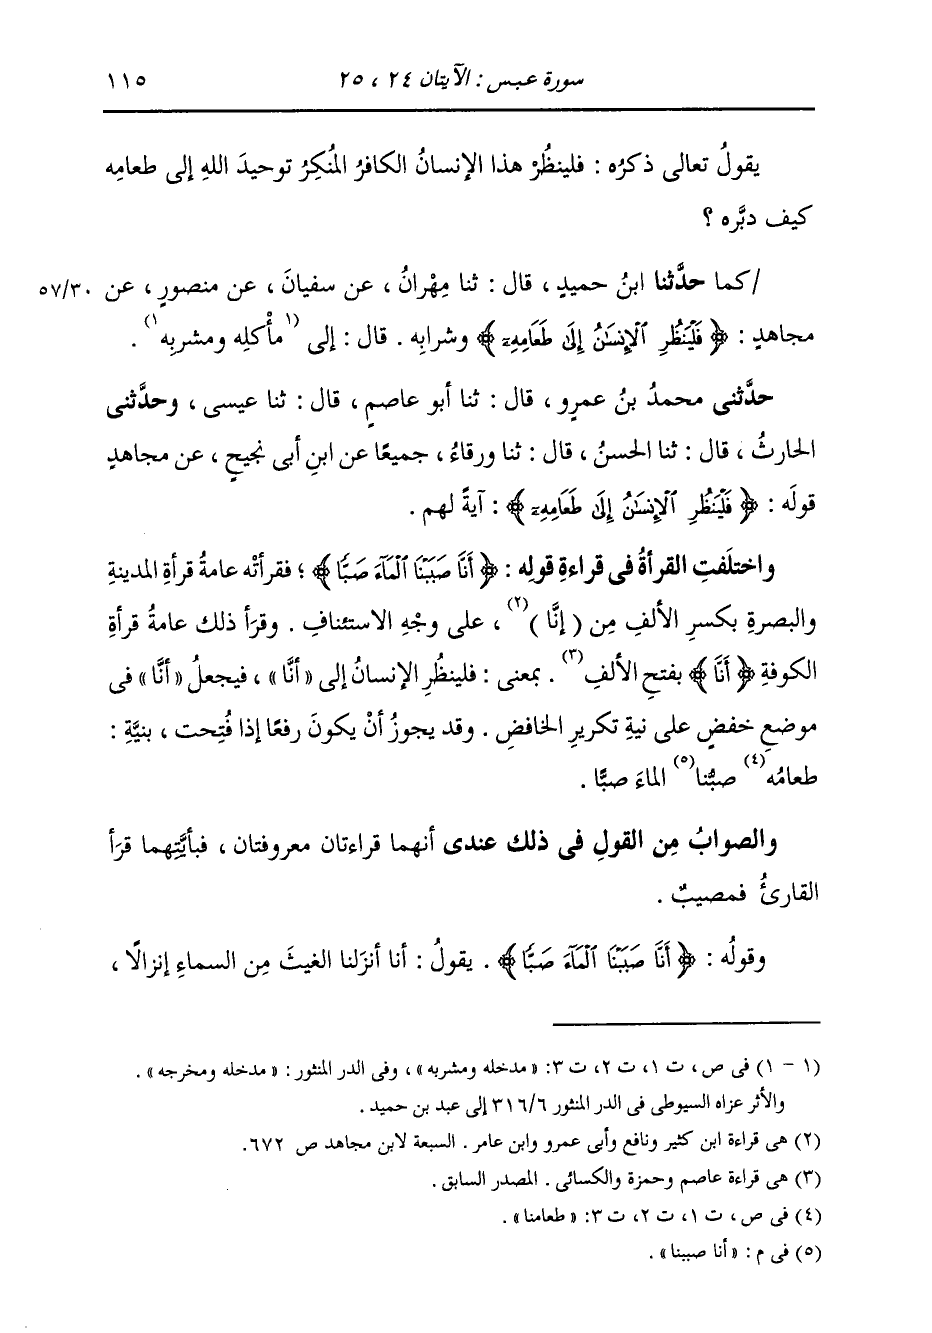 سورة عبس : الآيتان ٢٤ ، ٢٥ ١١٥
يقولُ تعالى ذكرُه : فلينظُرْ هذا الإنسانُ الكافرُ المُنكِرُ توحيدَ اللهِ إلى طعامِه
كيف دبَّره ؟
/كما حدَّثنا ابنُ حميدٍ ، قال : ثنا مِهْرانُ ، عن سفيانَ ، عن منصورٍ ، عن ٥٧/٣٠
مجاهدٍ : ﴿ فَلْيَنظُرِ ٱلْإِنسَٰنُ إِلَىٰ طَعَامِهِۦٓ ﴾ وشرابِه . قال : إلى (١ مأْكلِه ومشربِه ١) .
حدَّثنى محمدُ بنُ عمرٍو ، قال : ثنا أبو عاصمٍ ، قال : ثنا عيسى ، وحدَّثنى
الحارثُ ، قال : ثنا الحسنُ ، قال : ثنا ورقاءُ ، جميعًا عن ابنِ أبى نجيحٍ ، عن مجاهدٍ
قولَه : ﴿ فَلْيَنظُرِ ٱلْإِنسَٰنُ إِلَىٰ طَعَامِهِۦٓ ﴾ : آيةً لهم .
واختلَفتِ القرأةُ فى قراءةِ قولِه : ﴿ أَنَّا صَبَبْنَا ٱلْمَآءَ صَبًّا ﴾ ؛ فقرأتْه عامةُ قرأةِ المدينةِ
والبصرةِ بكسرِ الألفِ مِن ( إنَّا )(٢) ، على وجْهِ الاستئنافِ . وقرَأ ذلك عامةُ قرأةِ
الكوفةِ ﴿ أَنَّا ﴾ بفتحِ الألفِ(٣) . بمعنى : فلينظُرِ الإنسانُ إلى «أنَّا» ، فيجعلُ «أنَّا» فى
موضعِ خفضٍ على نيةِ تكريرِ الخافضِ . وقد يجوزُ أنْ يكونَ رفعًا إذا فُتِحت ، بنيَّةِ :
طعامُه(٤) صبُّنا(٥) الماءَ صبًّا .
والصوابُ مِن القولِ فى ذلك عندى أنهما قراءتان معروفتان ، فبأيَّتِهما قرَأ
القارئُ فمصيبٌ .
وقولُه : ﴿ أَنَّا صَبَبْنَا ٱلْمَآءَ صَبًّا ﴾ . يقولُ : أنا أنزَلنا الغيثَ مِن السماءِ إنزالًا ،
(١ - ١) فى ص، ت ١، ت ٢، ت ٣: «مدخله ومشربه» ، وفى الدر المنثور : «مدخله ومخرجه» .
والأثر عزاه السيوطى فى الدر المنثور ٣١٦/٦ إلى عبد بن حميد .
(٢) هى قراءة ابن كثير ونافع وأبى عمرو وابن عامر . السبعة لابن مجاهد ص ٦٧٢.
(٣) هى قراءة عاصم وحمزة والكسائى . المصدر السابق .
(٤) فى ص، ت ١، ت ٢، ت ٣: «طعامنا» .
(٥) فى م : «أنا صببنا» .